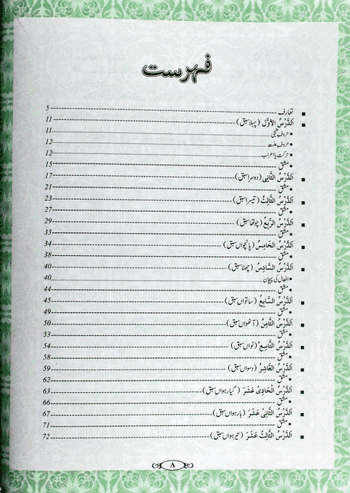 فہرست
تعارف 5
اَلدَّرْسُ الْاَوَّلُ (پہلا سبق) 11
حروف تہجی 11
حروف علت 12
حرکت یا اعراب 12
مشق 15
اَلدَّرْسُ الثَّانِی (دوسرا سبق) 17
مشق 21
اَلدَّرْسُ الثَّالِثُ (تیسرا سبق) 23
مشق 27
اَلدَّرْسُ الرَّابِعُ (چوتھا سبق) 29
مشق 33
اَلدَّرْسُ الْخَامِسُ (پانچواں سبق) 34
مشق 38
اَلدَّرْسُ السَّادِسُ (چھٹا سبق) 40
افعال کی پہچان 40
مشق 44
اَلدَّرْسُ السَّابِعُ (ساتواں سبق) 45
مشق 49
اَلدَّرْسُ الثَّامِنُ (آٹھواں سبق) 50
مشق 54
اَلدَّرْسُ التَّاسِعُ (نواں سبق) 54
مشق 58
اَلدَّرْسُ الْعَاشِرُ (دسواں سبق) 59
مشق 62
اَلدَّرْسُ الْحَادِیَ عَشَرَ (گیارہواں سبق) 63
مشق 66
اَلدَّرْسُ الثَّانِیَ عَشَرَ (بارہواں سبق) 67
مشق 71
اَلدَّرْسُ الثَّالِثَ عَشَرَ (تیرہواں سبق) 72
۸